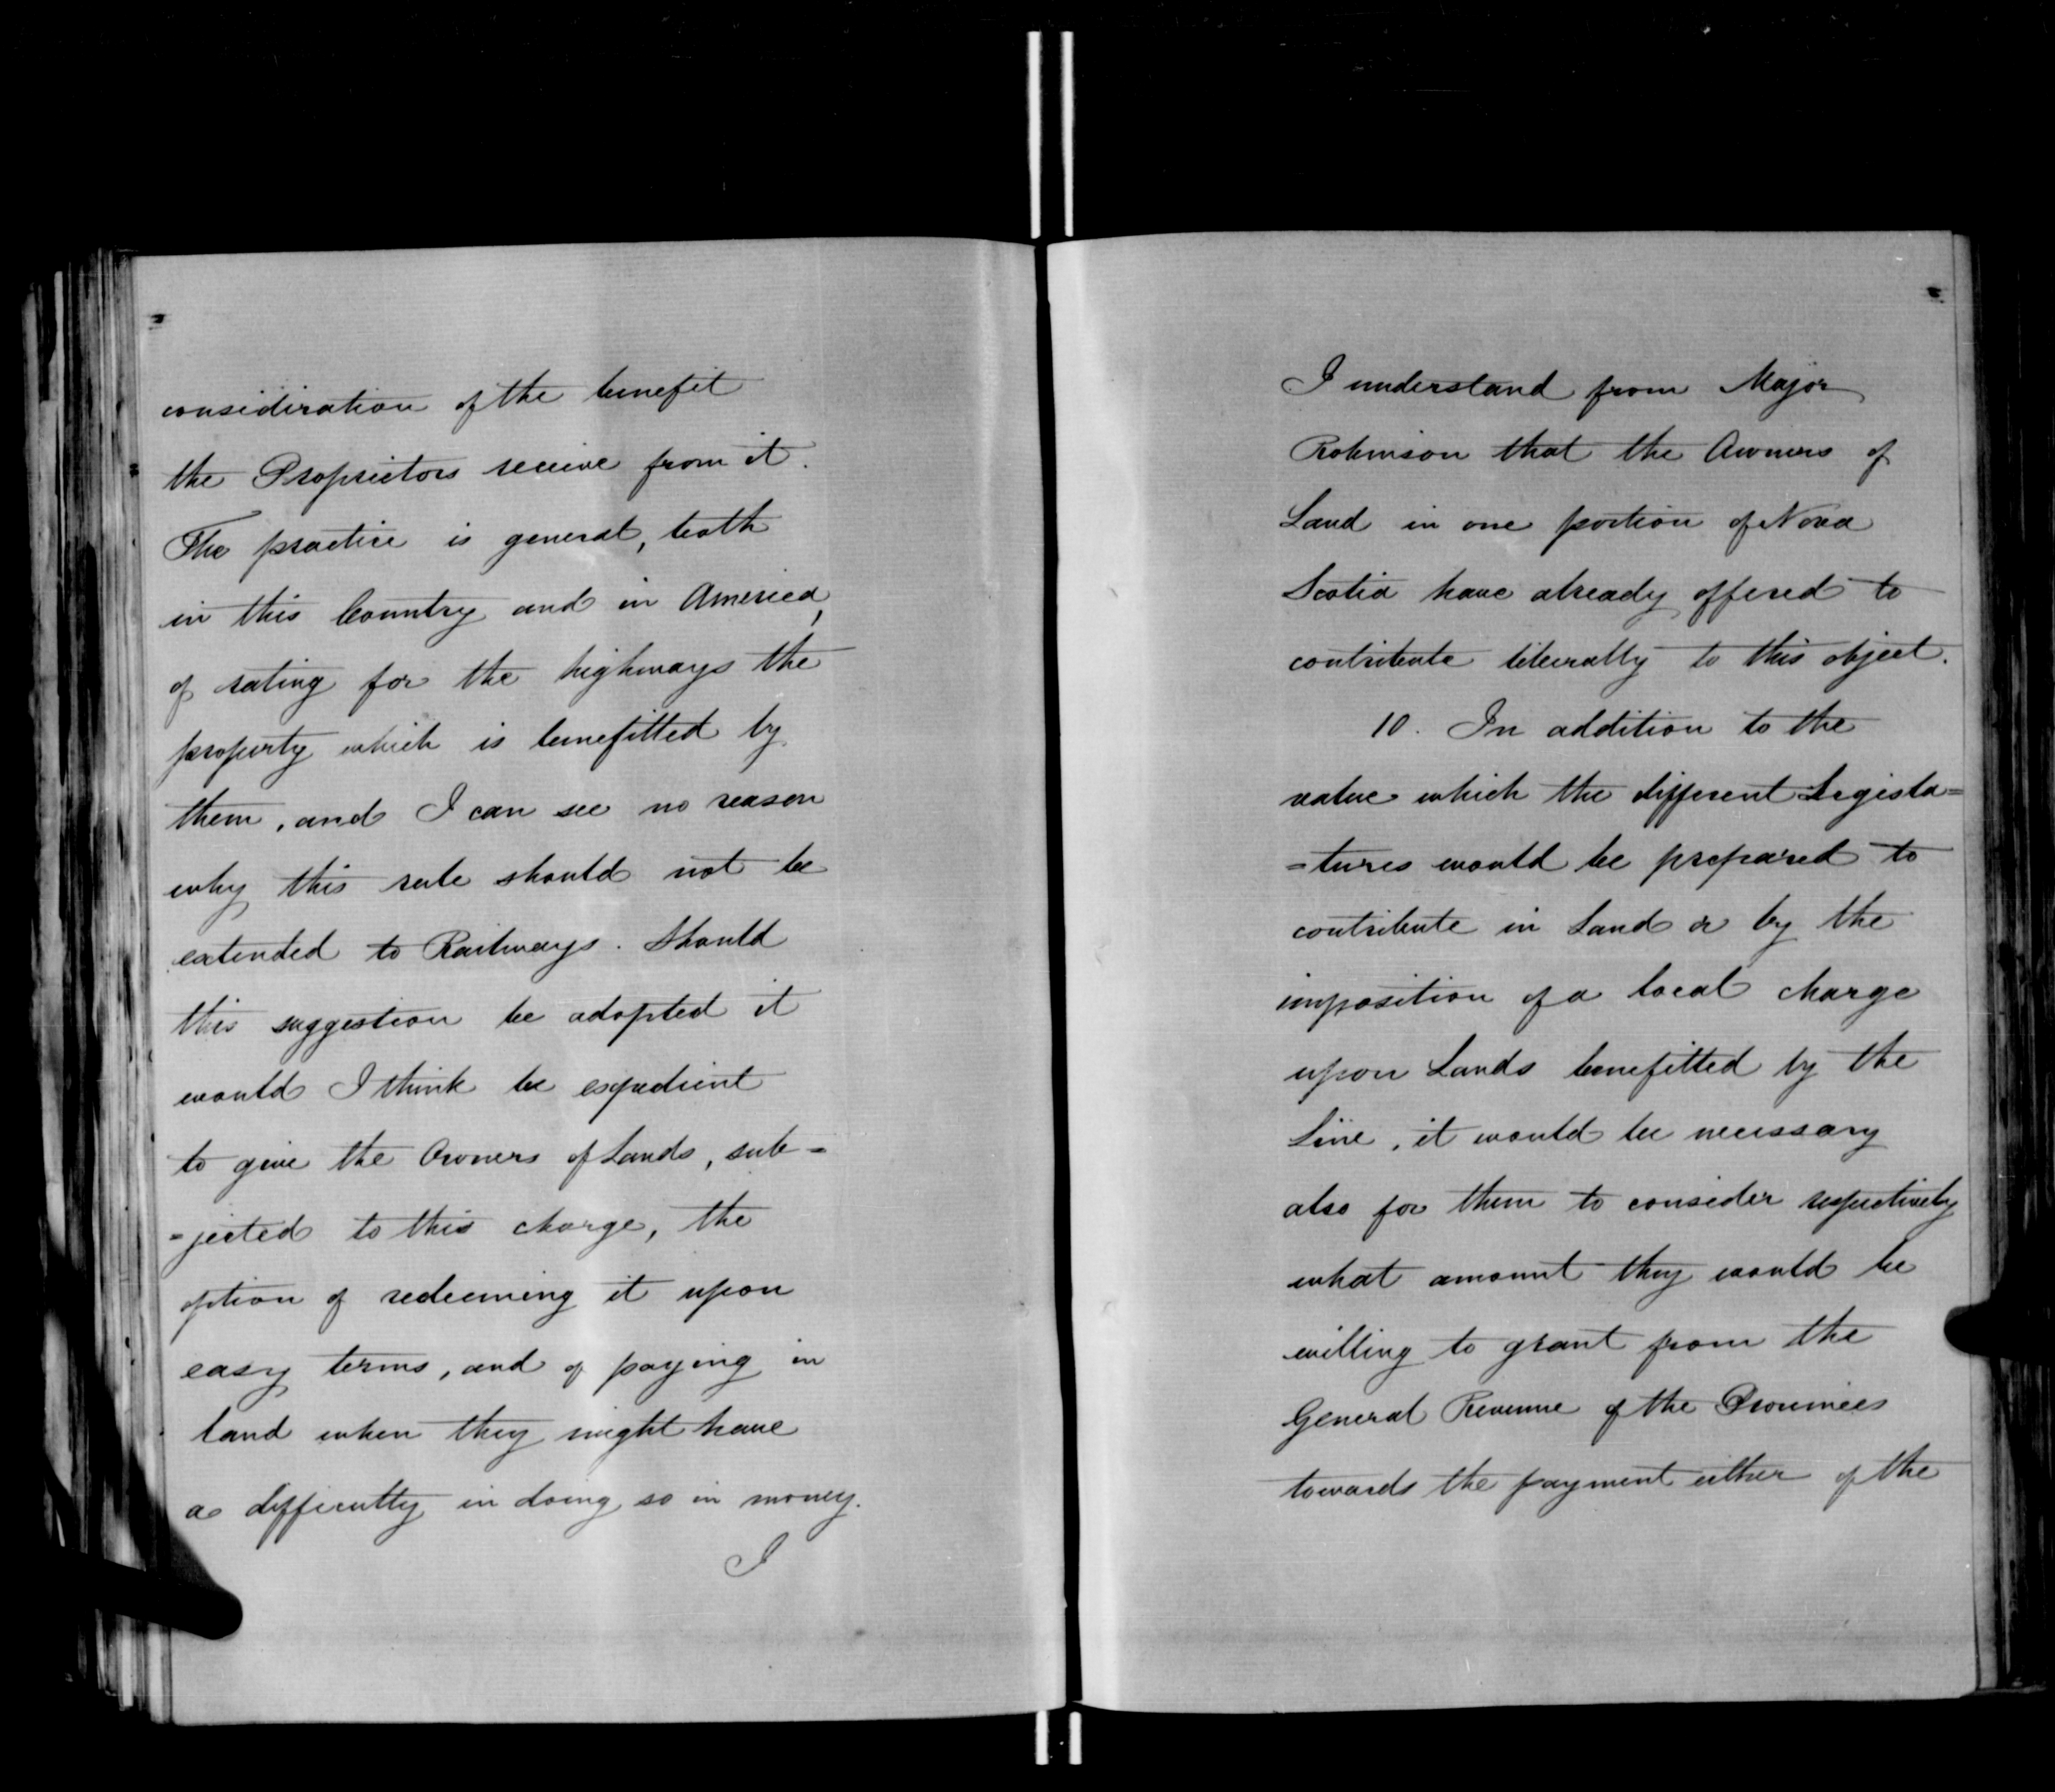 consideration of the benefit
the Proprietors receive from it.
The practice is general, both
in this Country and in America,
of rating for the highways the
property which is benefitted by
them, and I can see no reason
why this rule should not be
extended to Railways. Should
this suggestion be adopted it
would I think be expedient
to give the Owners of Lands, sub=
=jected to this charge, the
option of redeeming it upon
easy terms, and of paying in
land when they might have
a difficulty in doing so in money.
I
I understand from Major
Robinson that the Owners of
Land in one portion of Nova
Scotia have already offered to
contribute liberally to this object.
10. In addition to the
value which the different Legisla=
=tures would be prepared to
contribute in Land or by the
imposition of a local charge
upon Lands benefitted by the
Line, it would be necessary
also for them to consider respectively
what amount they would be
willing to grant from the
General Revenue of the Provinces
towards the payment either of the